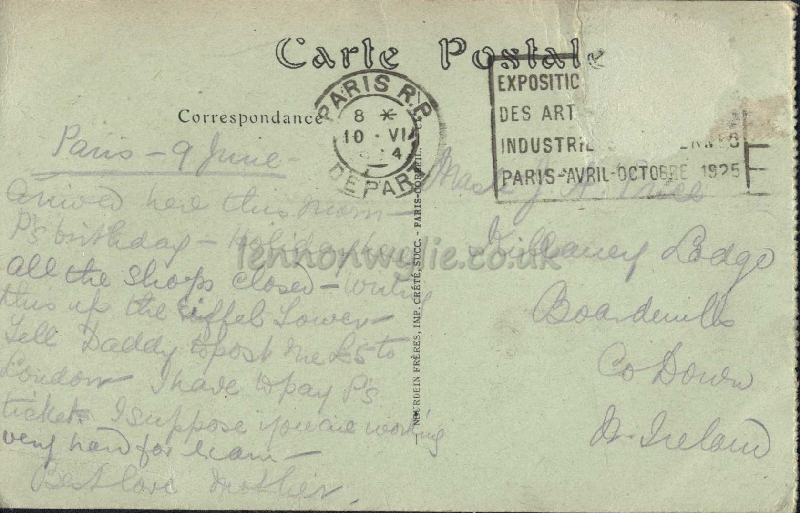 Carte Postale
Correspondance
PARIS R.P.
8 *
10 · VI
DEPART
EXPOSITIO
DES ART
INDUSTRIE
PARIS-AVRIL-OCTOBRE 1925
Paris - 9 June -
Arrived here this morn -
P's birthday - Holiday
all the shops closed - writing
this up the Eiffel Tower -
Tell Daddy to post me £5 to
London I have to pay P's
ticket. I suppose you are working
very hard for exam -
Best love Mother.
NEURDEIN FRÈRES, IMP. CRÉTÉ, SUCC. - PARIS-CORBEIL
Mast J. Price
Killaney Lodge
Boardmills
Co Down
N. Ireland
lennonwylie.co.uk